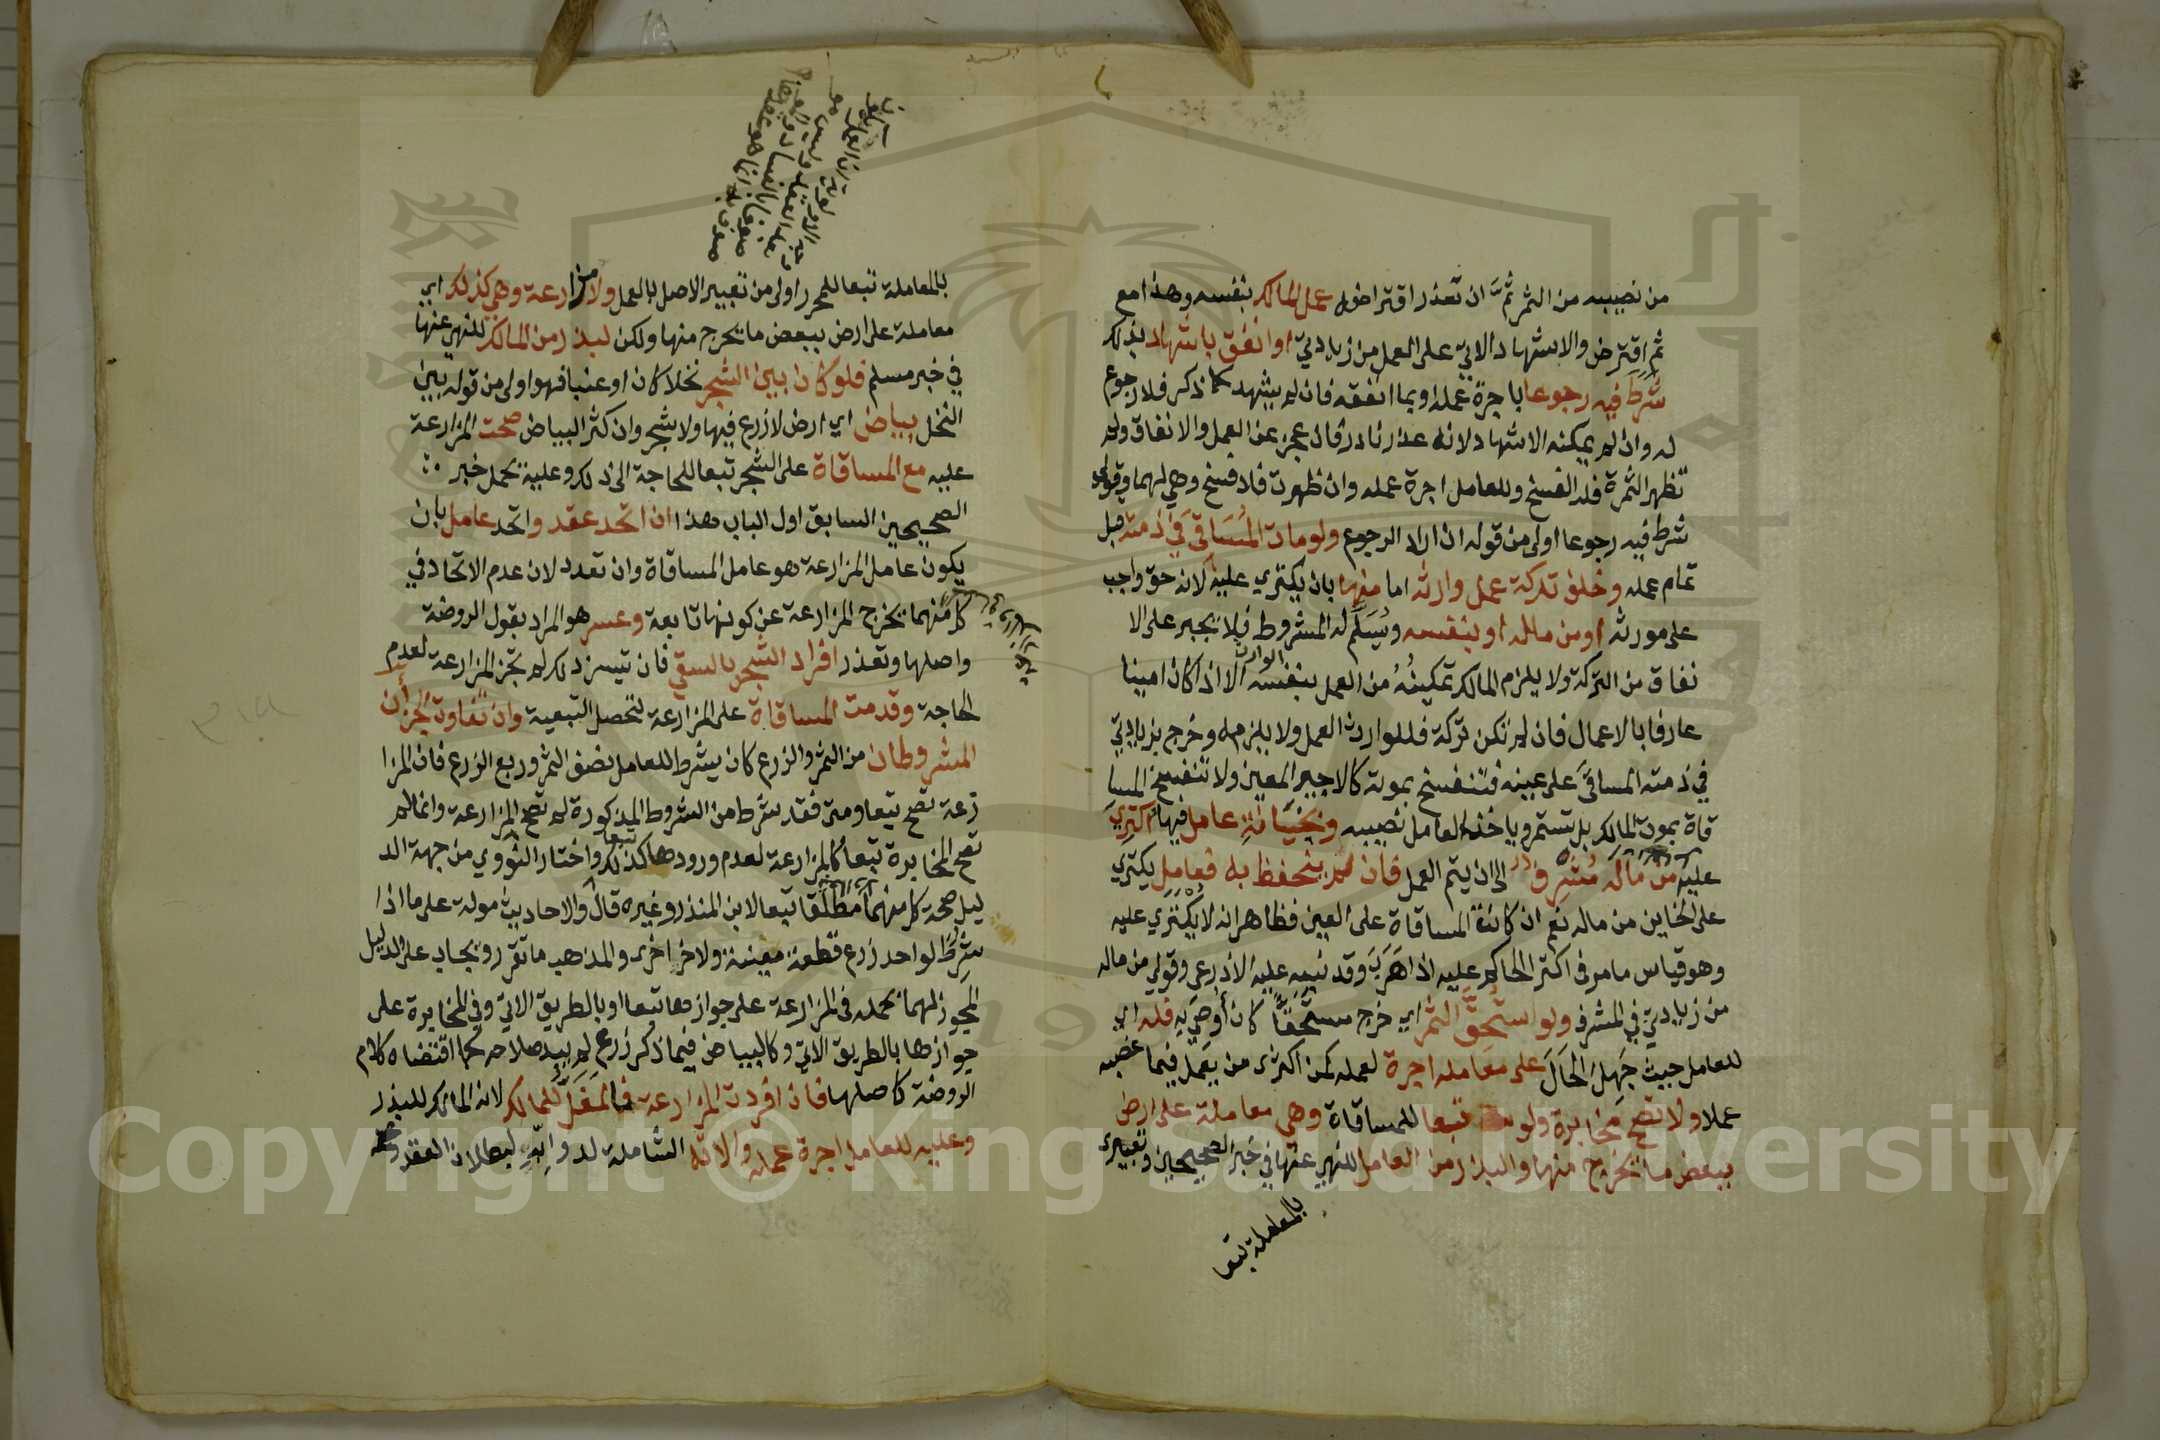 من نصيبه من الثمر ثم ان تعذر اقتراضه عمل المالك بنفسه وهذا مع
ثم اقترض والاشهاد الاتي على العمل من زيادتي او انفق باشهاد بذلك
شرط فيه رجوعا باجرة عمله او بما انفقه فان لم يشهد كما ذكر فلا رجوع
له وان لم يمكنه الاشهاد لانه عذر نادر فان عجز عن العمل والانفاق ولم
تظهر الثمرة فله الفسخ وللعامل اجرة عمله وان ظهرت فلا فسخ وهي لهما وقولي
شرط فيه رجوعا اولى من قوله ان اراد الرجوع ولو مات المساقي في ذمته قبل
تمام عمله وخلف تركة عمل وارثه اما منها بان يكتري عليه لانه حق واجب
على مورثه او من ماله او بنفسه ويسلم له المشروط فلا يجبر على الا
نفاق من التركة ولا يلزم المالك تمكينه من العمل بنفسه الا اذا كان امينا
الوارث
عارفا بالاعمال فان لم تكن تركة فللوارث العمل ولا يلزمه وخرج بزيادتي
في ذمته المساقى على عينه فتنفسخ بموته كالاجير المعين ولا تنفسخ المسا
قاة بموت المالك بل تستمر وياخذ العامل نصيبه وبخيانة عامل فيها اكتري
عليه من ماله مشرف الى ان يتم العمل فان لم يتحفظ به فعامل يكتري
على الخاين من ماله نعم ان كانت المساقاة على العين فظاهر انه لا يكتري عليه
وهو قياس ما مر في اكترا الحاكم عليه اذا هرب وقد نبه عليه الاذرعي وقولي من ماله
من زيادتي في المشرف ولو استحق الثمر اي خرج مستحقا كان اوصي به فله اي
للعامل حيث جهل الحال على معامله اجرة لعمله كمن اكترى من يعمل فيما غصبه
عملا ولا تصح مخابرة ولو تبعا للمساقاة وهي معاملة على ارض
ببعض ما يخرج منها والبذر من العامل للنهي عنها في خبر الصحيحين وتعبيري
بالمعاملة تبعا
بالمعاملة تبعا للمحرر اولى من تعبير الاصل بالعمل ولا مزارعة وهي كذلك اي
معاملة على ارض ببعض ما يخرج منها ولكن لبذر من المالك للنهي عنها
في خبر مسلم فلو كان بين الشجر نخلا كان او عنبا فهو اولى من قوله بين
النخل بياض اي ارض لا زرع فيها ولا شجر وان كثر البياض صحت المزارعة
عليه مع المساقاة على الشجر تبعا للحاجة الى ذلك وعليه يحمل خبر
الصحيحين السابق اول الباب هذا ان اتحد عقد واتحد عامل بان
يكون عامل المزارعة هو عامل المساقاة وان تعدد لان عدم الاتحاد في
كل منهما يخرج المزارعة عن كونها تابعة وعسر هو المراد بقول الروضة
واصلها وتعذر افراد الشجر بالسقي فان تيسر ذلك لم تجز المزارعة لعدم
الحاجة وقدمت المساقاة على المزارعة لتحصل التبعية وان تفاوت الجزان
المشروطان من الثمر والزرع كان يشرط للعامل نصف الثمر وربع الزرع فان المزا
رعة تصح تبعا ومتى فقد شرط من الشروط المذكورة لم تصح المزارعة وانما لم
تصح المخابرة تبعا كالمزارعة لعدم ورودها كذلك واختار النووي من جهة الد
ليل صحة كل منهما مطلقا تبعا لابن المنذر وغيره قال والاحاديث مولة على ما اذا
شرط لواحد زرع قطعة معينة ولاخر اخرى والمذهب ما تقرر ويجاب على الدليل
المجوز لهما بحمله في المزارعة على جوازها تبعا او بالطريق الاتي وفي المخابرة على
جوازها بالطريق الاتي وكالبياض فيما ذكر زرع لم يبد صلاحه كما اقتضاه كلام
الروضة كاصلها فان افردت المزارعة فالمغل للمالك لانه المالك للبذر
وعليه للعامل اجرة عمله والاته الشاملة لدوابه لبطلان العقد
Copyright © King Saud University